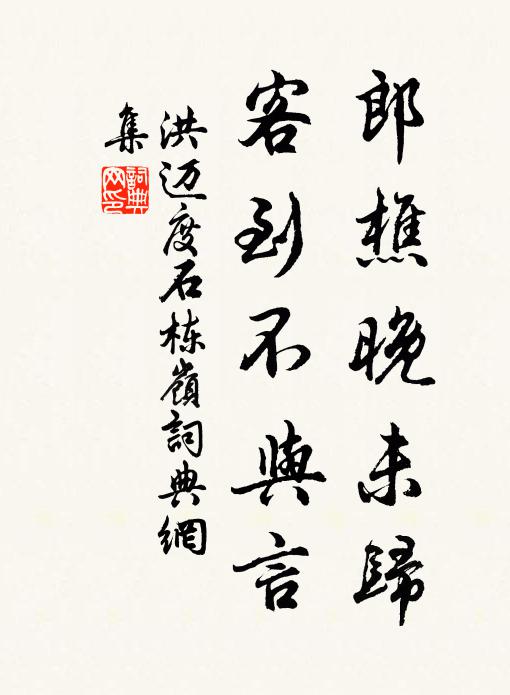 郎樵晚未歸
客到不與言
洪迈度石栋嶺詞典網
集
詞典网印